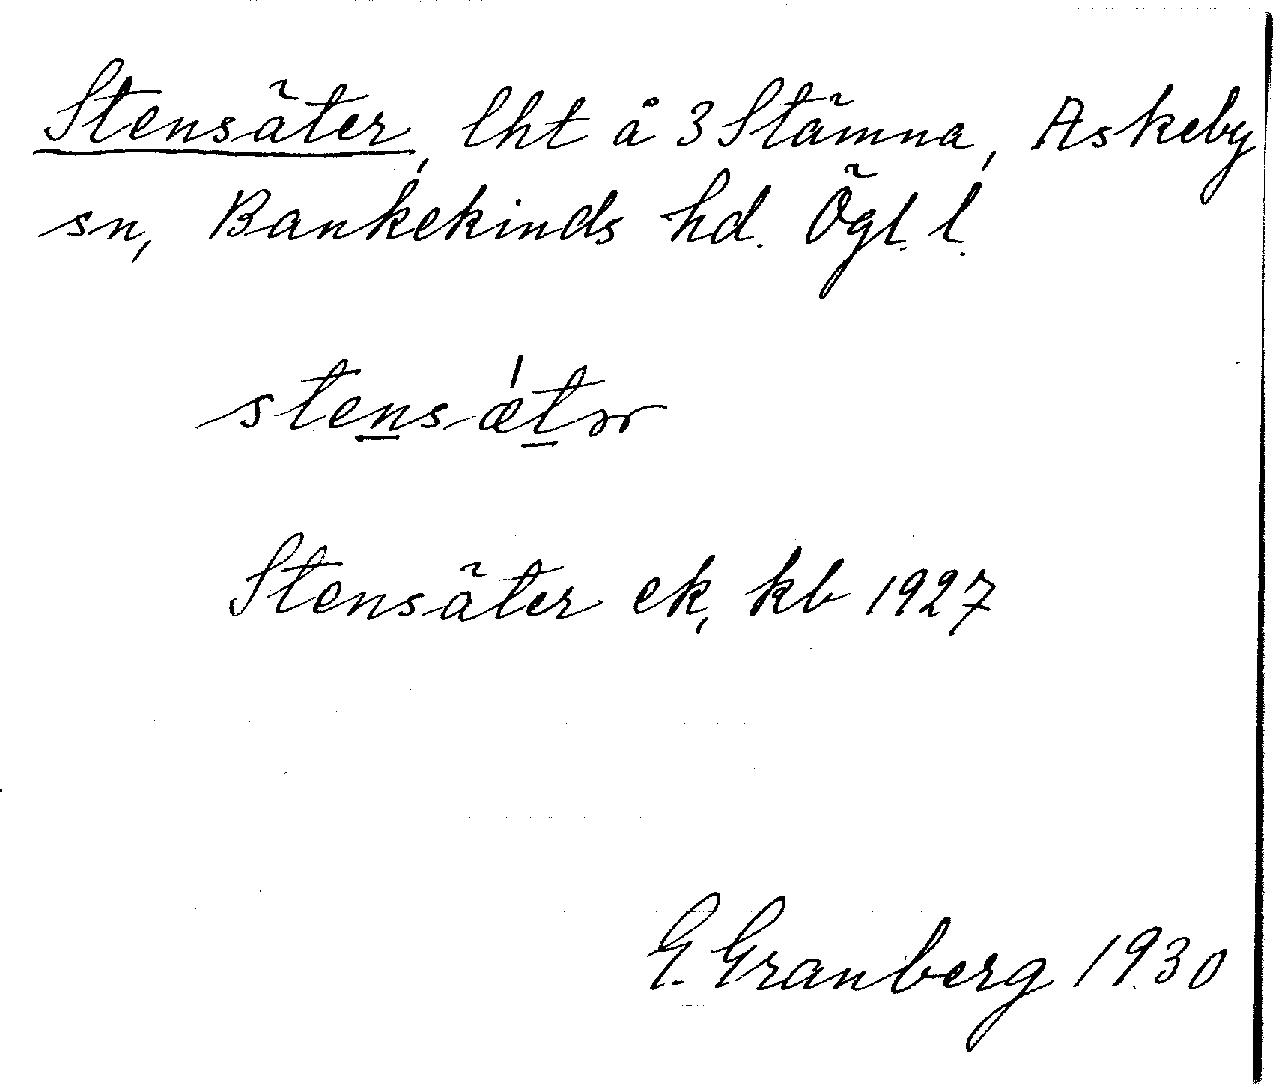 Stensäter, lht å 3 Stämna, Askeby
sn, Bankekinds hd. Ögl. l.
stensǽtər
Stensäter ek, kb 1927
G. Granberg 1930